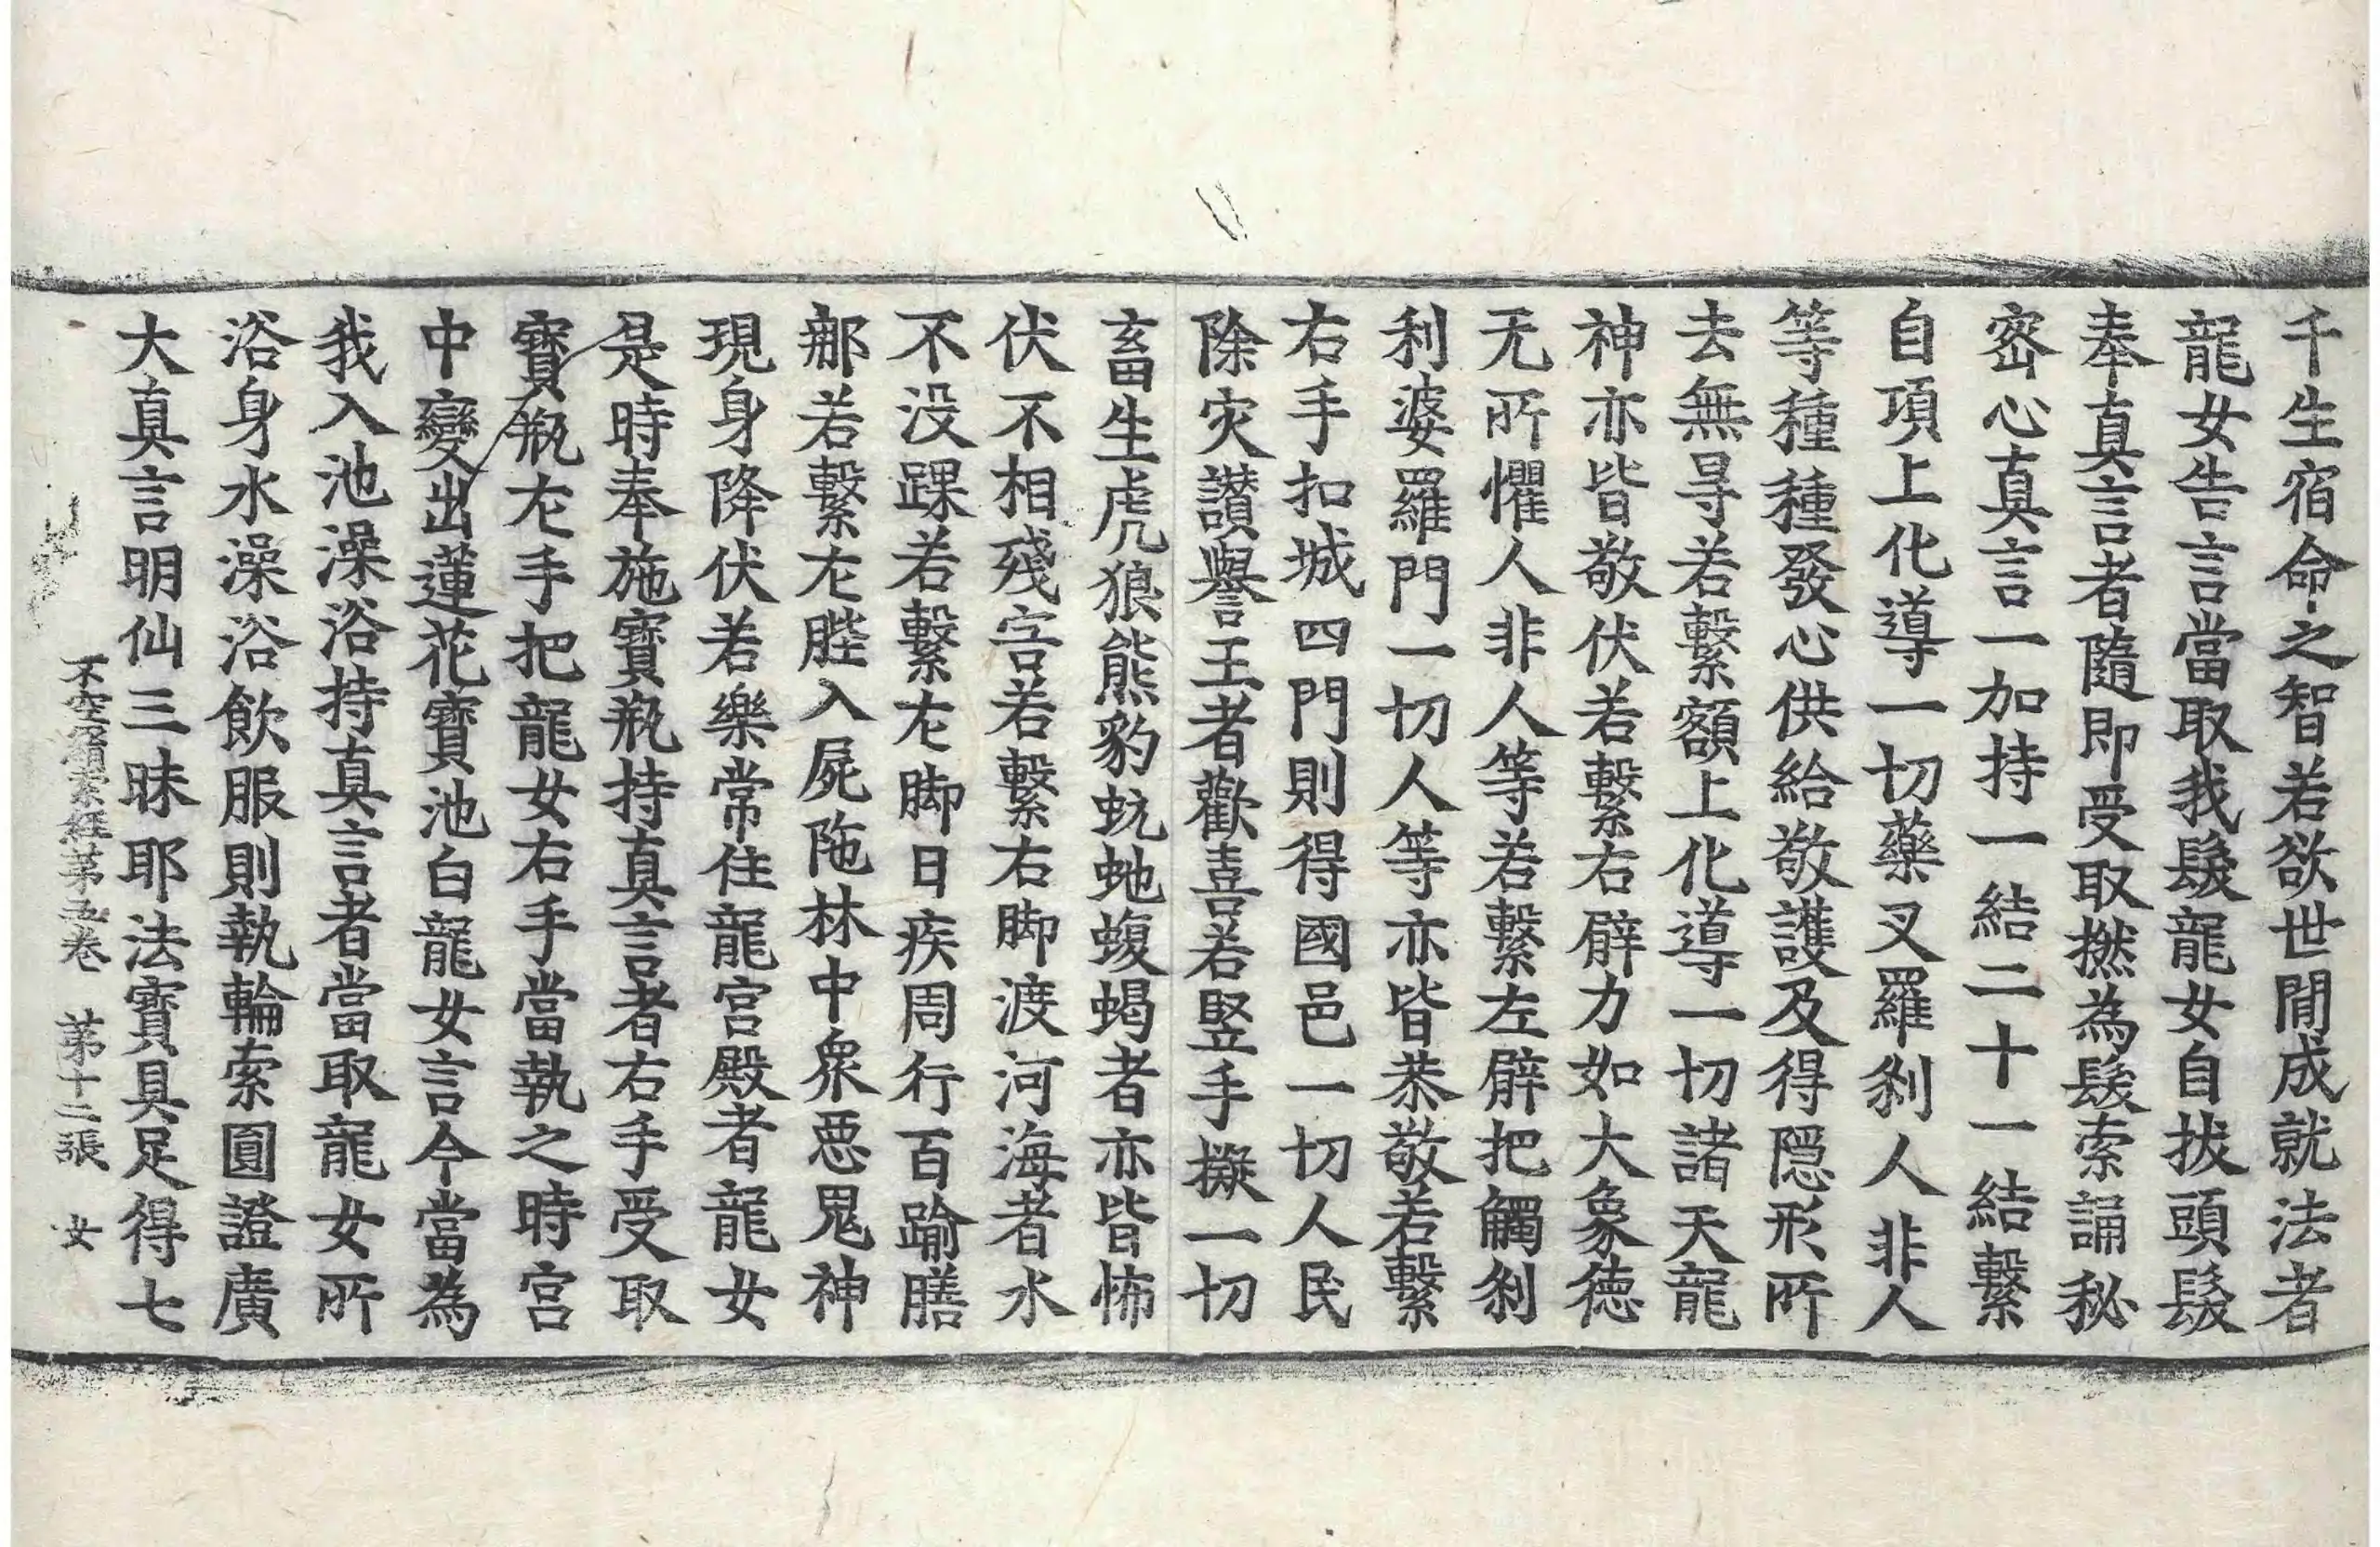 千生宿命之智若欲世閒成就法者
龍女告言當取我髮龍女自拔頭髮
奉真言者隨即受取撚為髮索誦秘
密心真言一加持一結二十一結繫
自項上化導一切藥叉羅剎人非人
等種種發心供給敬護及得隱形所
去無㝵若繫額上化導一切諸天龍
神亦皆敬伏若繫右臂力如大象德
无所懼人非人等若繫左臂把觸剎
利婆羅門一切人等亦皆恭敬若繫
右手扣城四門則得國邑一切人民
除灾讃譽王者歡喜若竪手擬一切
畜生虎狼熊豹蚖虵蝮蝎者亦皆怖
伏不相殘害若繫右脚渡河海者水
不没踝若繫㔫脚日疾周行百踰膳
那若繫㔫䏶入屍陁林中衆惡鬼神
現身降伏若樂常住龍宫殿者龍女
是時奉施寶瓶持真言者右手受取
寶瓶㔫手把龍女右手當執之時宫
中變出蓮花寶池白龍女言今當為
我入池澡浴持真言者當取龍女所
浴身水澡浴飲服則執輪索圓證廣
大真言明仙三昧耶法寶具足得七
不空羂索経苐五卷　苐十二張　女